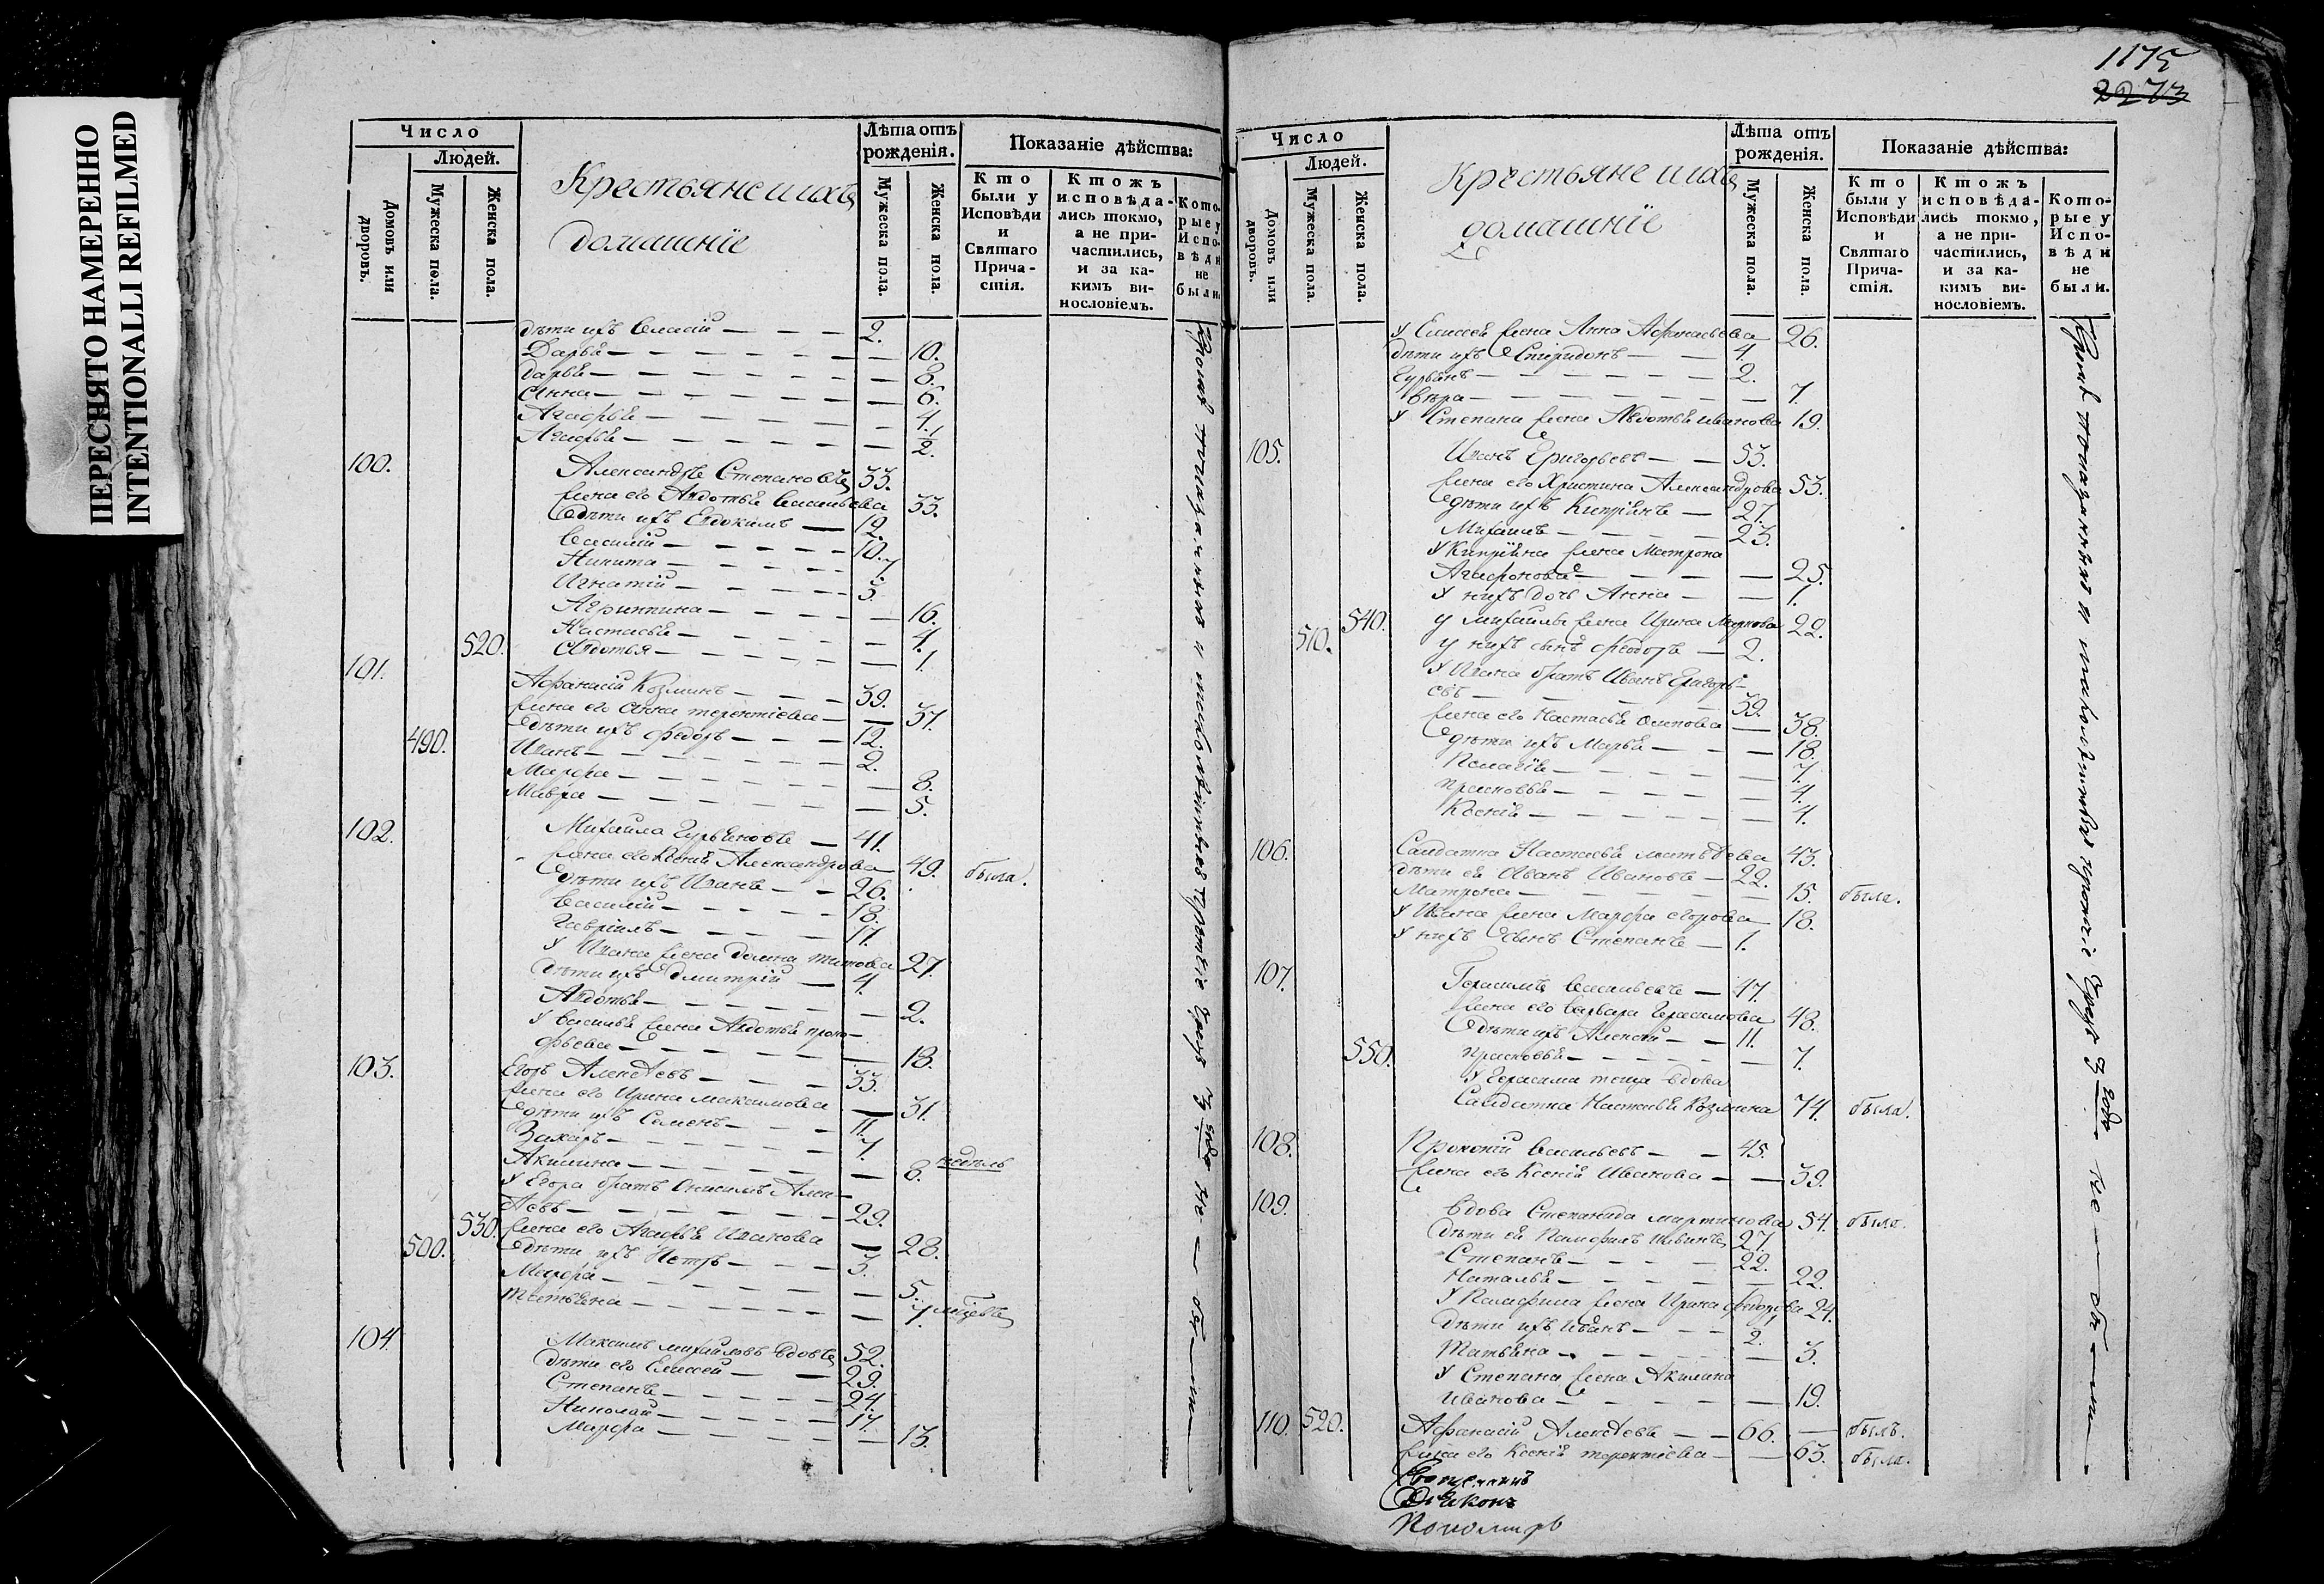 ПЕРЕСНЯТО НАМЕРЕННО
INTENTIONALLI REFILMED
Число
Людей.
Домовъ или дворовъ.
Мужеска пола.
Женска пола.
Крестьяне и ихъ
домашнїе
Лѣта отъ рожденія.
Мужеска пола.
Женска пола.
Показаніе дѣйства:
Кто были у Исповѣди и Святаго Причастія.
Ктожъ исповѣдались токмо, а не причастились, и за какимъ винословіемъ.
Которые у Исповѣди не были.
дѣти ихъ Власїй — 2.
Дарья — 10.
Дарья — 8.
Анна — 6.
Агафья — 4.
Агафья — 1/2.
100. Александръ Степановъ 33.
жена его Авдотья Васильева 33.
дѣти ихъ Евдокимъ — 12.
Василій — 10.
Никита — 7.
Игнатій — 3.
Агриппина — 16.
Настасья — 4.
520. Авдотья — 1.
101. Афанасій Козминъ — 39.
жена его Анна терентіева — 37.
490. дѣти ихъ Федоръ — 12.
Иванъ — 2.
Марфа — 8.
Мавра — 5.
102. Михайла Гурьяновъ — 41.
жена его Ксенія Александрова 49. была.
дѣти ихъ Иванъ — 26.
Василій — 18.
Гавріилъ — 17.
У Ивана жена титова 27.
дѣти ихъ Дмитрій — 4.
Авдотья — 2.
У Василья жена Авдотья проко-
фьева — 18.
103. Егоръ Алексѣевъ — 33.
жена его Ирина максимова — 31.
дѣти ихъ Семенъ — 11.
Захаръ — 7.
Акилина — 8. недѣль
У Егора братъ Анисимъ Алек-
сѣевъ — 29.
530. жена его Агафья Иванова — 28.
500. дѣти ихъ Петръ — 3.
Марфа — 5.
татьяна — 7 мѣсецевъ
104. Максимъ михайловъ вдовъ 52.
дѣти его Елисей — 29.
Степанъ — 24.
Николай — 17.
Марфа — 13.
Кромѣ показанныхъ и малолѣтныхъ протчіе чрезъ 3 года не — бы — ли —
1175
2273
Число
Людей.
Домовъ или дворовъ.
Мужеска пола.
Женска пола.
Крестьяне и ихъ
домашнїе
Лѣта отъ рожденія.
Мужеска пола.
Женска пола.
Показаніе дѣйства:
Кто были у Исповѣди и Святаго Причастія.
Ктожъ исповѣдались токмо, а не причастились, и за какимъ винословіемъ.
Которые у Исповѣди не были.
У Елисея жена Анна Афанасьева 26.
дѣти ихъ Спиридонъ — 4.
Гурьянъ — 2.
Вѣра — 7.
У Степана жена Авдотья иванова 19.
105. Иванъ Григорьевъ — 53.
жена его Христина Александрова 53.
дѣти ихъ Кипріянъ — 27.
Михаилъ — 23.
У Кипріяна жена Матрона
Агафонова — 25.
У нихъ дочь Анна — 1.
540. у михайлы жена Ирина 22.
510. у нихъ сынъ Феодоръ — 2.
У Ивана братъ Иванъ Григорь-
евъ — 39.
жена его Настасья осипова — 38.
дѣти ихъ Марья — 18.
Пелагія — 7.
прасковья — 4.
Ксенія — 4.
106. Салдатка Настасья матвѣева 43.
дѣти ея Иванъ Ивановъ — 22.
Матрона — 15. была.
У Ивана жена Марфа егорова 18.
У нихъ сынъ Степанъ — 1.
107. Герасимъ Васильевъ — 47.
жена его варвара Герасимова 48.
дѣти ихъ Алексѣй — 11.
550. прасковья — 7.
У герасима теща вдова
Салдатка Настасья Козмина 74. была.
108. Прокопій Васильевъ — 45.
жена его Ксенія Иванова — 39.
109. вдова Степанида мартинова 54. была.
дѣти ея Памфилъ Ивановъ 27.
Степанъ — 22.
Наталья — 22.
У Памфила жена Ирина федорова 24.
дѣти ихъ Иванъ — 2.
Татьяна — 3.
У Степана жена Акилина
иванова — 19.
110. 520. Афанасій Алексѣевъ — 66. — былъ.
жена его Ксенія терентіева — 63. была.
Кромѣ показанныхъ и малолѣтныхъ протчіе чрезъ 3 года не — бы — ли —
Священникъ
Діаконъ
Пономарь